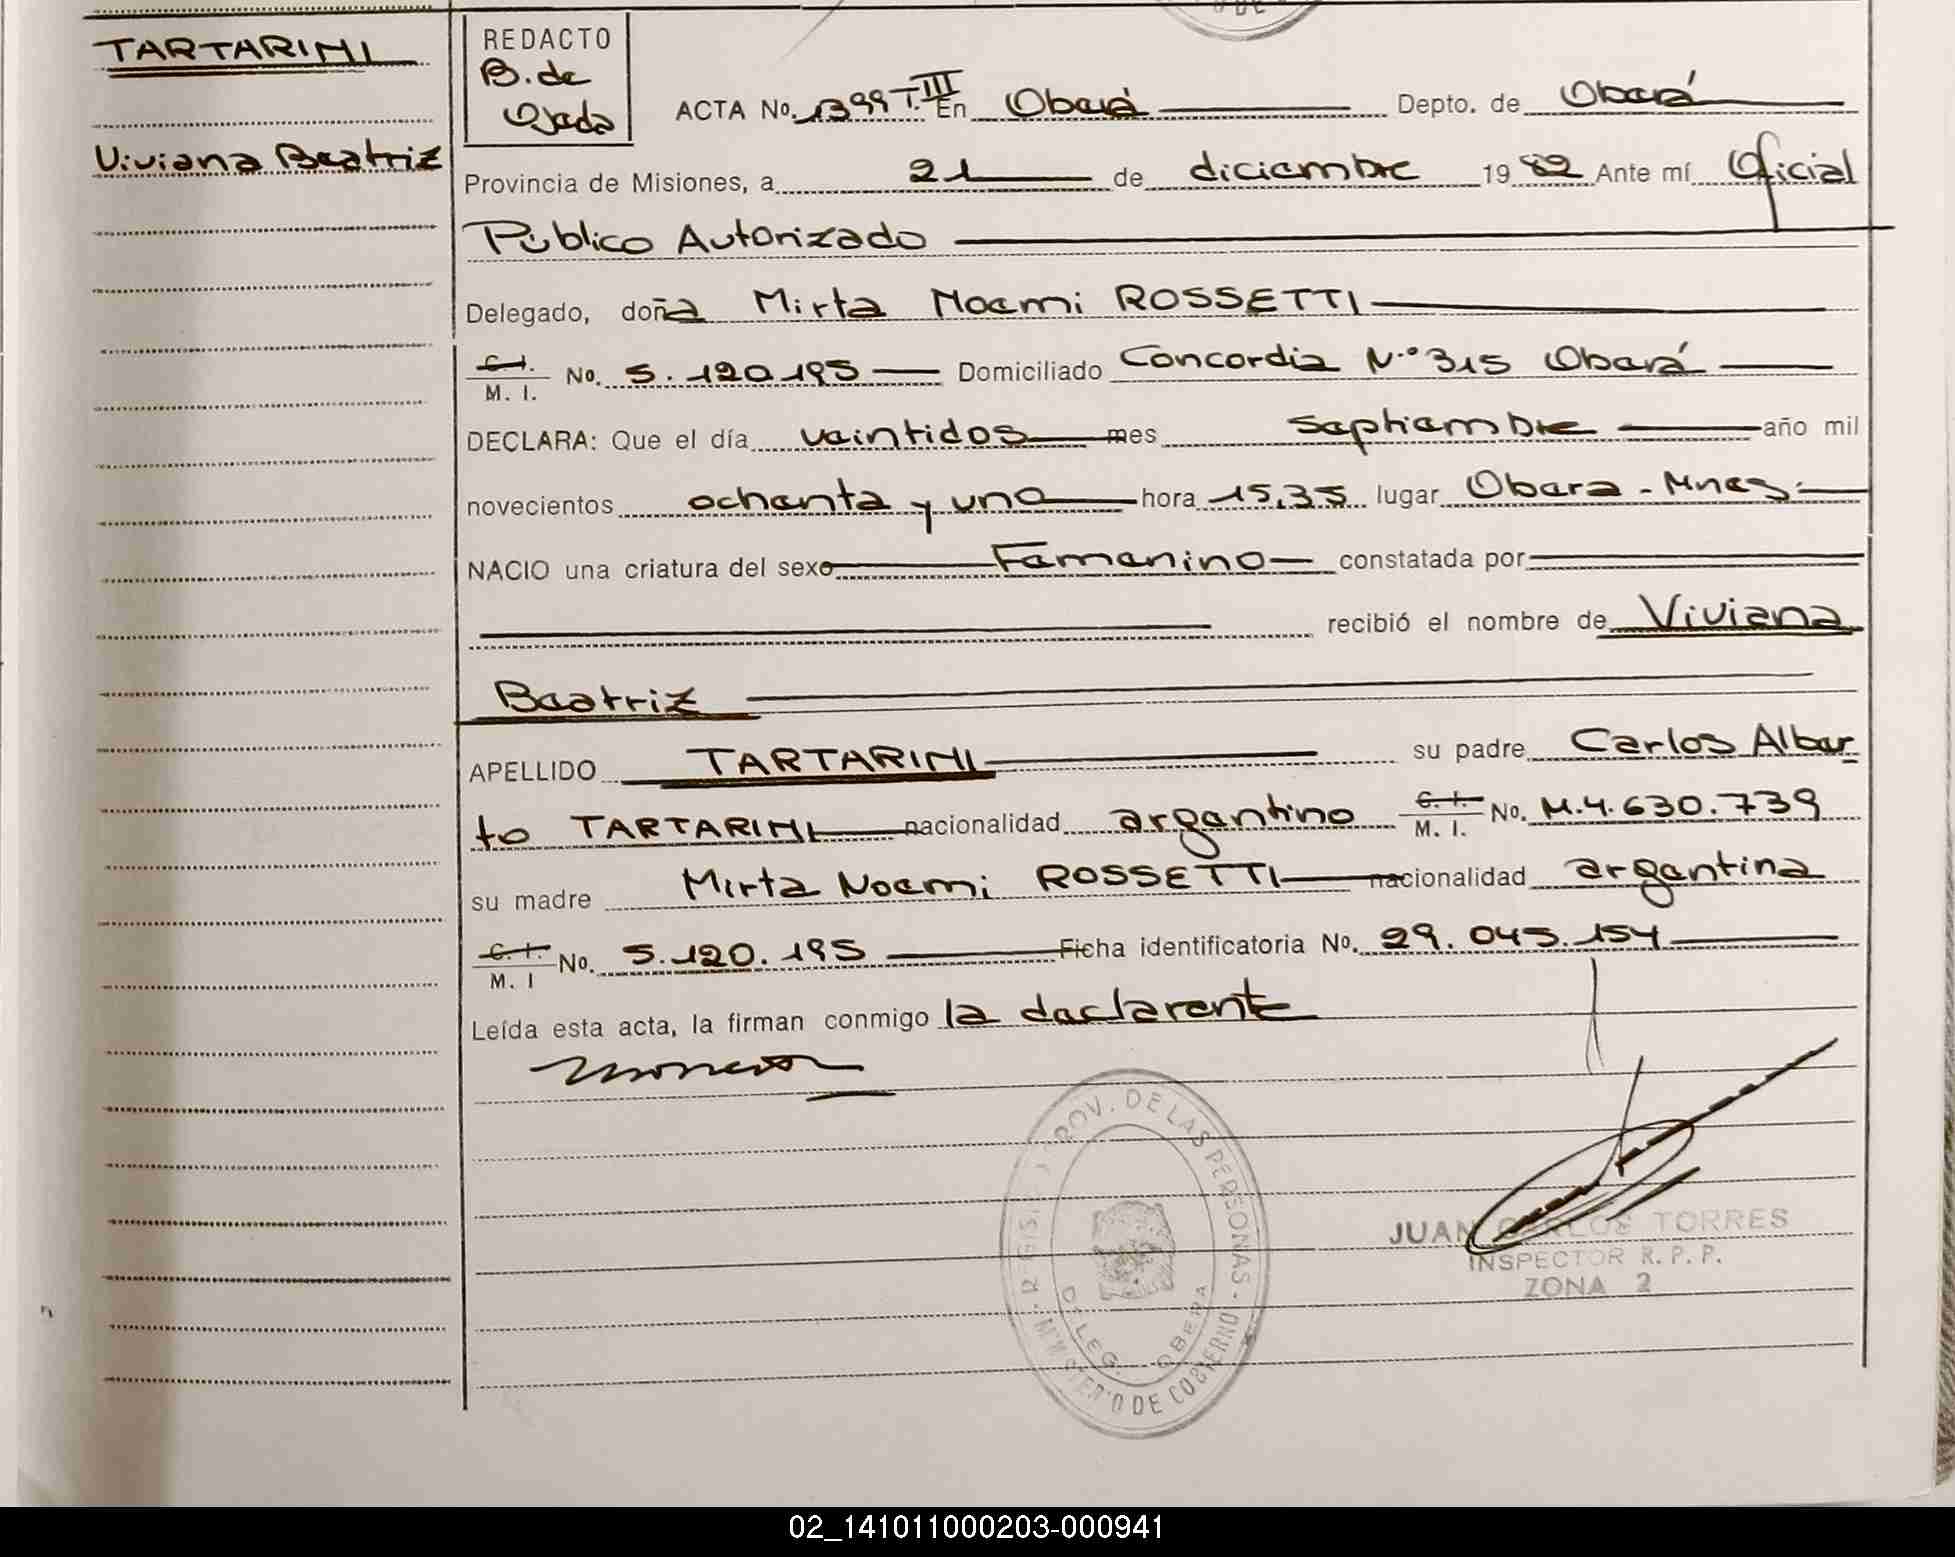 TARTARINI
Viviana Beatriz
REDACTO
B. de
Ojeda
ACTA No. 1399 T.III En Oberá Depto. de Oberá
Provincia de Misiones, a 21 de diciembre 1982 Ante mí Oficial
Público Autorizado
Delegado, doña Mirta Noemi ROSSETTI
C.I. M. I. No. 5.120.195 Domiciliado Concordia N.º 315 Oberá
DECLARA: Que el día veintidos mes septiembre año mil
novecientos ochenta y uno hora 15,35 lugar Obera - Mnes.
NACIO una criatura del sexo Femenino constatada por
recibió el nombre de Viviana
Beatriz
APELLIDO TARTARINI su padre Carlos Alber
to TARTARINI nacionalidad argentino C.I. M. I. No. M.4.630.739
su madre Mirta Noemi ROSSETTI nacionalidad argentina
C.I. M. I No. 5.120.195 Ficha identificatoria No. 29.045.154
Leída esta acta, la firman conmigo la declarente
PROV. DE LAS PERSONAS
DELEG. OBERA
MINISTERIO DE GOBIERNO
JUAN CARLOS TORRES
INSPECTOR R. P. P.
ZONA 2
02_141011000203-000941